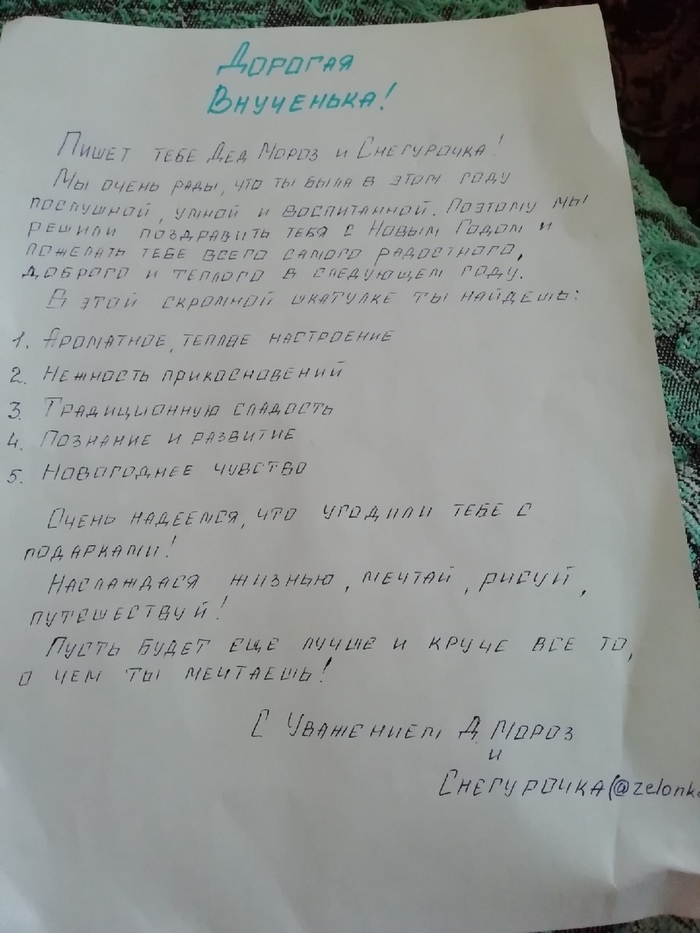 Дорогая
Внученька!
Пишет тебе Дед Мороз и Снегурочка!
Мы очень рады, что ты была в этом году
послушной, умной и воспитанной. Поэтому мы
решили поздравить тебя с Новым Годом и
пожелать тебе всего самого радостного,
доброго и теплого в следующем году.
В этой скромной шкатулке ты найдешь:
1. Ароматное, теплое настроение
2. Нежность прикосновений
3. Традиционную сладость
4. Познание и развитие
5. Новогоднее чувство
Очень надеемся, что угодили тебе с
подарками!
Наслаждася жизнью, мечтай, рисуй,
путешествуй!
Пусть будет еще лучше и круче все то,
о чем ты мечтаешь!
С Уважением Д. Мороз
и
Снегурочка (@zelonka